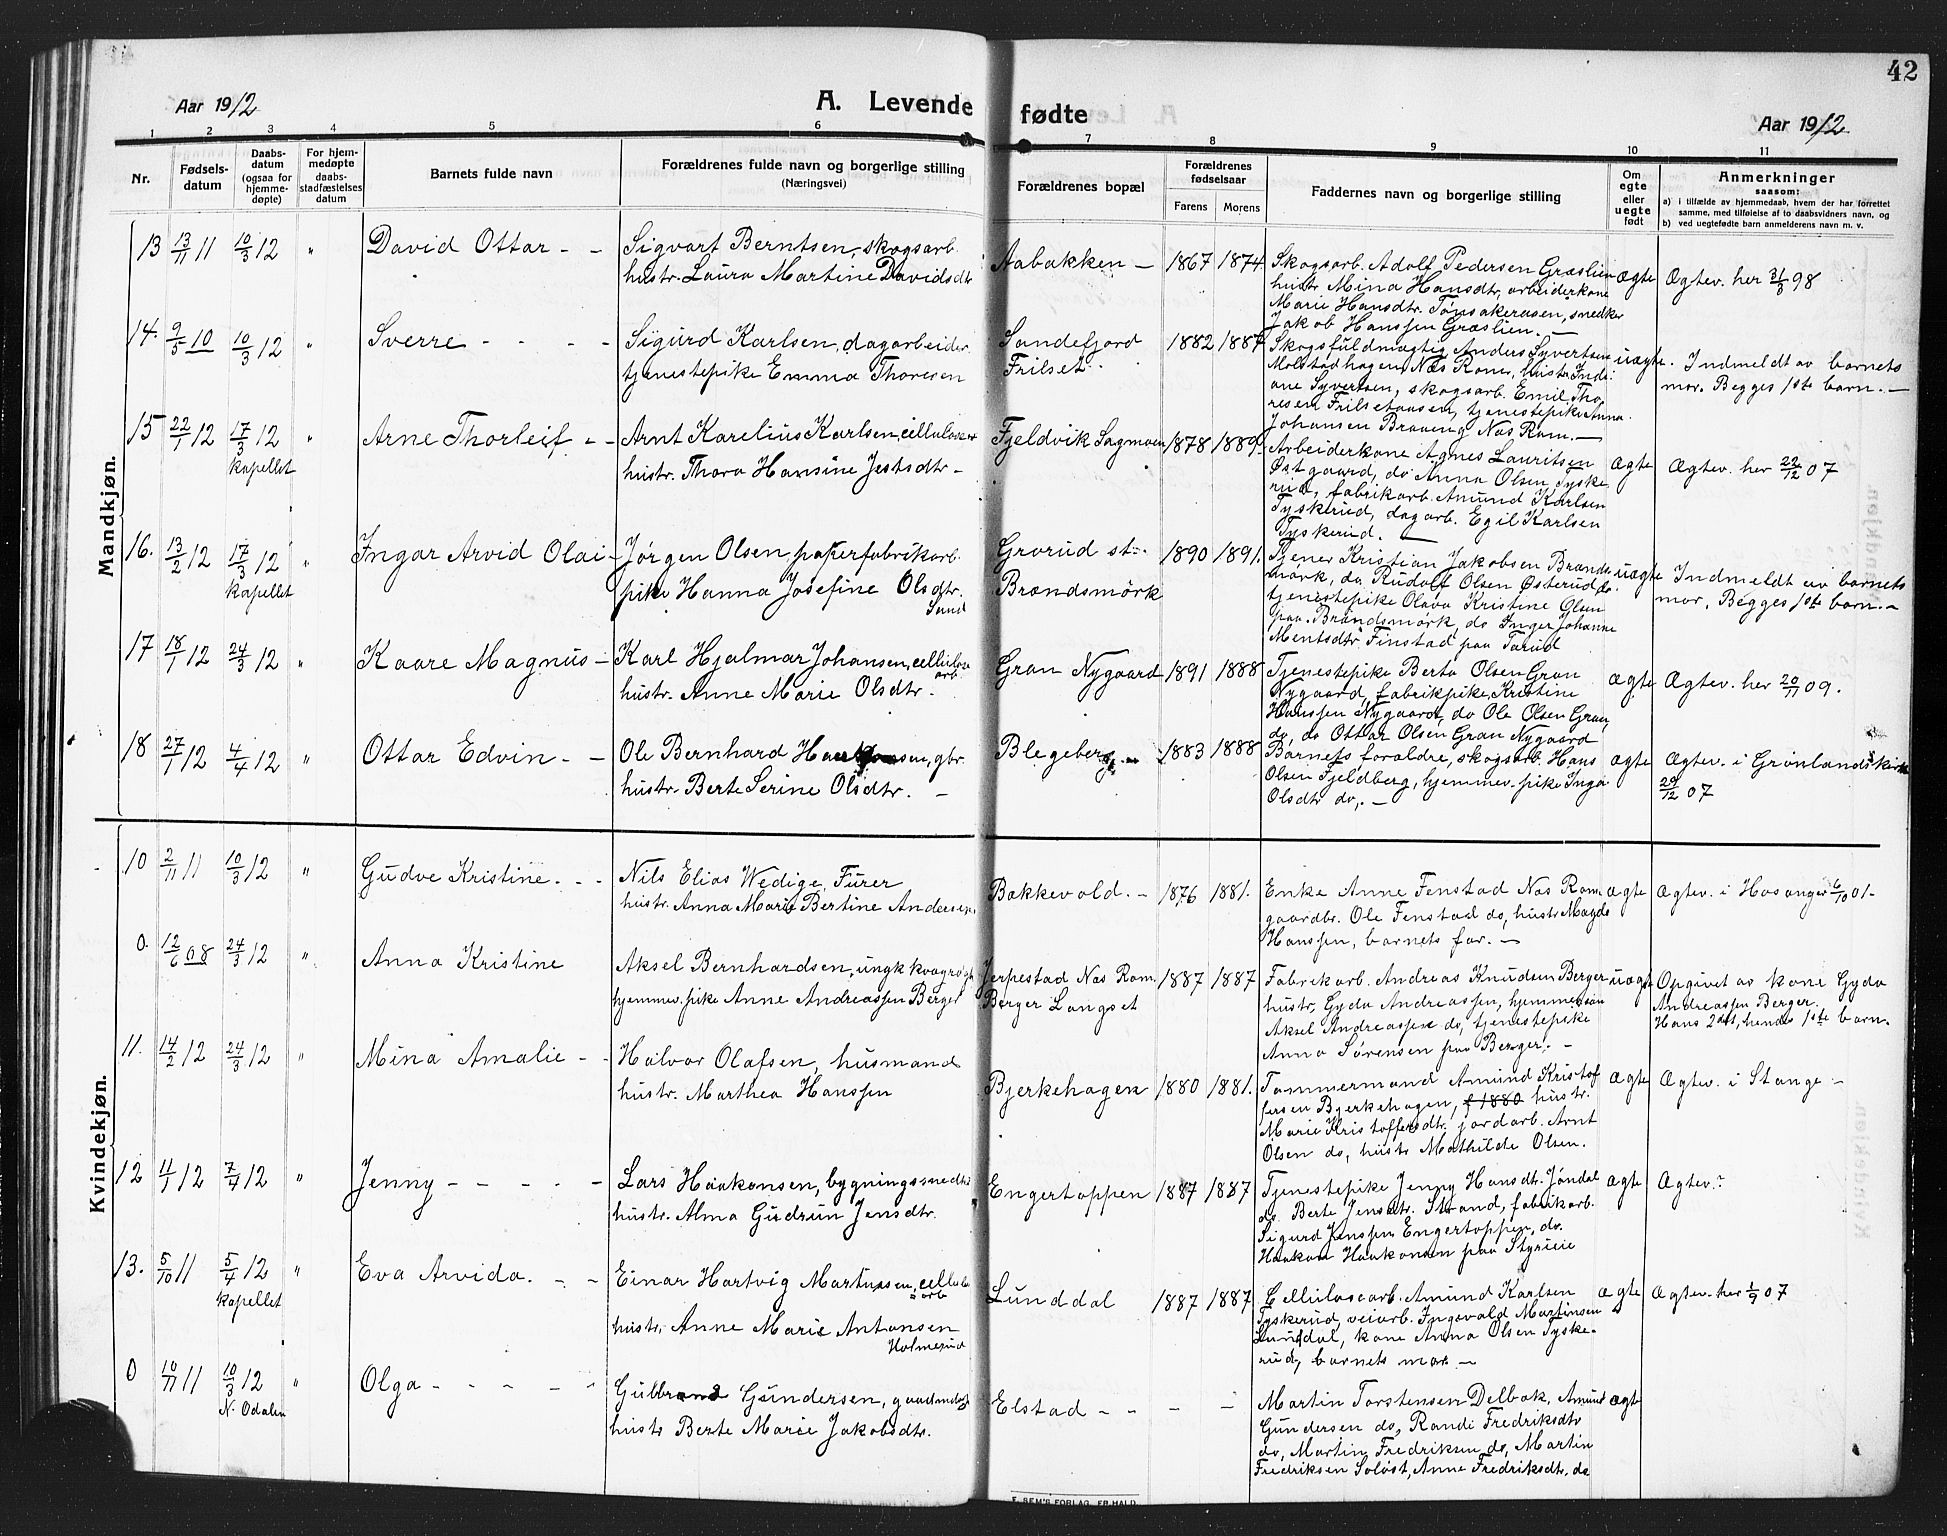 42
Aar 1912
A. Levende fødte
Aar 1912
1 2 3 4 5 6 7 8 9 10 11
Nr.
Fødsels-datum
Daabs-datum (ogsaa for hjemme-døpte)
For hjem-medøpte daabs-stadfæstelses datum
Barnets fulde navn
Forældrenes fulde navn og borgerlige stilling
(Næringsvei)
Forældrenes bopæl
Forældrenes fødselsaar
Farens Morens
Faddernes navn og borgerlige stilling
Om egte eller uegte født
Anmerkninger
saasom:
a) i tilfælde av hjemmedaab, hvem der har forrettet samme, med tilføielse af to daabsvidners navn, og
b) ved uegtefødte barn anmelderens navn m. v.
Mandkjøn.
13 13/11 11 10/3 12 " David Ottar - -
Sigvart Berntsen, skogsarb.
hustr. Laura Martine Davidsdtr
Aabakken - 1867 1874
Skogsarb. Adolf Pedersen Græslien
hustr Mina Hansdtr, arbeiderkone
Marie Hansdtr. Tønsakerasen, snedker
Jakob Hanssen Græslien. -
ægte Ægtev. her 31/3 98
14. 9/5 10 10/3 12 " Sverre - - - -
Sigurd Karlsen, dagarbeider
tjenestepike Emma Thoresen
Sandefjord
Frilset.
1882 1887
Skogsfuldmægtig Anders Syvertsen
Molstadhagen Næs Rom., hustr. Indi
ane Syvertsen, skogsarb. Emil Tho
resen Frilsetaasen, tjenestepike Anna
Johansen Braaeng Næs Rom. -
uægte. Indmeldt av barnets
mor. Begges 1ste barn. -
15 22/1 12 17/3 12 " Arne Thorleif - -
kapellet
Arnt Karelius Karlsen, cellulosear
hustr. Thora Hansine Jestsdtr -
Fjeldvik Sagmoen 1878 1889
Arbeiderkone Agnes Lauritsen
Østgaard, do Anna Olsen Tyske
rud, fabrikarb. Amund Karlsen
Tyskerud, dagarb. Egil Karlsen
Tyskerud. -
ægte Ægtev. her 22/12 07
16. 13/2 12 17/3 12 " Ingar Arvid Olai -
kapellet
Jørgen Olsen, papirfabrikarb.
pike Hanna Josefine Olsdtr.
Sand
Grorud st.
Brændsmørk
1890 1891.
Tjener Kristian Jakobsen Brænds
mørk, do Rudolf Olsen Østerud do.
tjenestepike Olava Kristine Olsen
paa Brændsmørk, do Inger Johanne
Mentsdtr Finstad paa Tarud
uægte Indmeldt av barnets
mor. Begges 1ste barn. -
17 18/1 12 24/3 12 " Kaare Magnus -
Karl Hjalmar Johansen, cellulose
arb
hustr. Anne Marie Olsdtr. -
Gran Nygaard 1891 1888
Tjenestepike Berta Olsen Gran
Nygaard, fabrikpike Kristine
Hanssen Nygaard, do Ole Olsen Gran,
do, do Ottar Olsen Gran Nygaard
ægte Ægtev. her 20/11 09.
18 27/1 12 4/4 12 " Ottar Edvin - -
Ole Bernhard Haakonsen, gbr.
hustr. Berte Serine Olsdtr. -
Blegeberg - 1883 1888
Barnets forældre, skogsarb. Hans
Olsen Fjeldberg, hjemmev. pike Inga
Olsdtr do, -
ægte Ægtev. i Grønlands kirke
29/12 07
Kvindekjøn.
10 2/11 11 10/3 12 " Gudve Kristine. - -
Nils Elias Wedige Fürer
hustr. Anna Marie Bertine Andersen
Bakkevold. - 1876 1881.
Enke Anne Fenstad Næs Rom
gaardbr. Ole Fenstad do, hustr Magda
Hanssen, barnets far. -
ægte Ægtev. i Hosanger 6/10 01-
0. 12/6 08 24/3 12 " Anna Kristine
Aksel Bernhardsen, ungk kvægrøgt
hjemmev. pike Anne Andreassen Berger
Jerpestad Næs Rom.
Berger Langset
1887 1887
Fabrikarb. Andreas Knudsen Berger
hustr, Gyda Andreassen, hjemmesøn
Aksel Andreassen do, tjenestepike
Anna Sørensen paa Berger. -
uægte Opgivet av kone Gyda
Andreassen Berger.
Hans 2det, hendes 1ste barn.
11. 14/2 12 24/3 12 " Mina Amalie - -
Halvor Olafsen, husmand
hustr. Marthea Hanssen
Bjerkehagen 1880 1881.
Tømmermand Amund Kristof
fersen Bjerkehagen, f 1880 hustr.
Marie Kristoffersdtr. jordarb. Arnt
Olsen do, hustr Mathilde Olsen.
ægte Ægtev. i Stange -
12 11/1 12 7/4 12 " Jenny - - - - -
Lars Haakonsen, bygningssnedk
hustr. Alma Gudrun Jensdtr.
Engertoppen 1887 1887
Tjenestepike Jenny Hansdtr. Jøndal
do Berte Jensdtr. Strand, fabrikarb.
Sigurd Jenssen Engertoppen, do.
Haakon Haakonsen paa Styrieie
ægte Ægtev.?
13. 5/10 11 5/4 12 " Eva Arvida. - -
kapellet
Einar Hartvig Martinsen, cellulose
arb
hustr. Anne Marie Antonsen
Holmerud
Lunddal 1887 1887
Cellulosearb. Amund Karlsen
Tyskerud, veiarb. Ingevald Martinsen
Lunddal, kone Anna Olsen Tyske-
rud, barnets mor -
ægte Ægtev. her 1/9 07
0 10/11 11 10/3 12 " Olga - - - - -
N. Odalen
Gulbrand Gundersen, gaardmdsøn
hustr Berte Marie Jakobsdtr.
Elstad - - - -
Martin Torstensen Delbak, Amund
Gundersen do, Randi Fredriksdtr
do, Martin Fredriksen do, Martin
Fredriksen Soløst, Anne Fredriksdtr. do
ægte
E. SEM'S FORLAG, FR.HALD